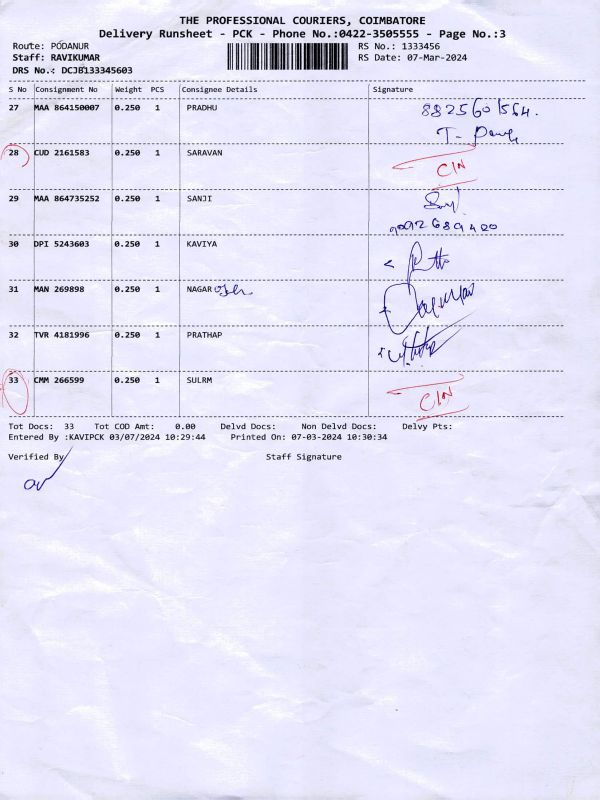 THE PROFESSIONAL COURIERS, COIMBATORE
Delivery Runsheet - PCK - Phone No.:0422-3505555 - Page No.:3
Route: PODANUR RS No.: 1333456
Staff: RAVIKUMAR RS Date: 07-Mar-2024
DRS No.: DCJB133345603
S No Consignment No Weight PCS Consignee Details Signature
27 MAA 864150007 0.250 1 PRADHU 8825601564.
28 CUD 2161583 0.250 1 SARAVAN C/N
29 MAA 864735252 0.250 1 SANJI
9092689420
30 DPI 5243603 0.250 1 KAVIYA
31 MAN 269898 0.250 1 NAGAR
32 TVR 4181996 0.250 1 PRATHAP
33 CMM 266599 0.250 1 SULRM C/N
Tot Docs: 33 Tot COD Amt: 0.00 Delvd Docs: Non Delvd Docs: Delvy Pts:
Entered By :KAVIPCK 03/07/2024 10:29:44 Printed On: 07-03-2024 10:30:34
Verified By Staff Signature